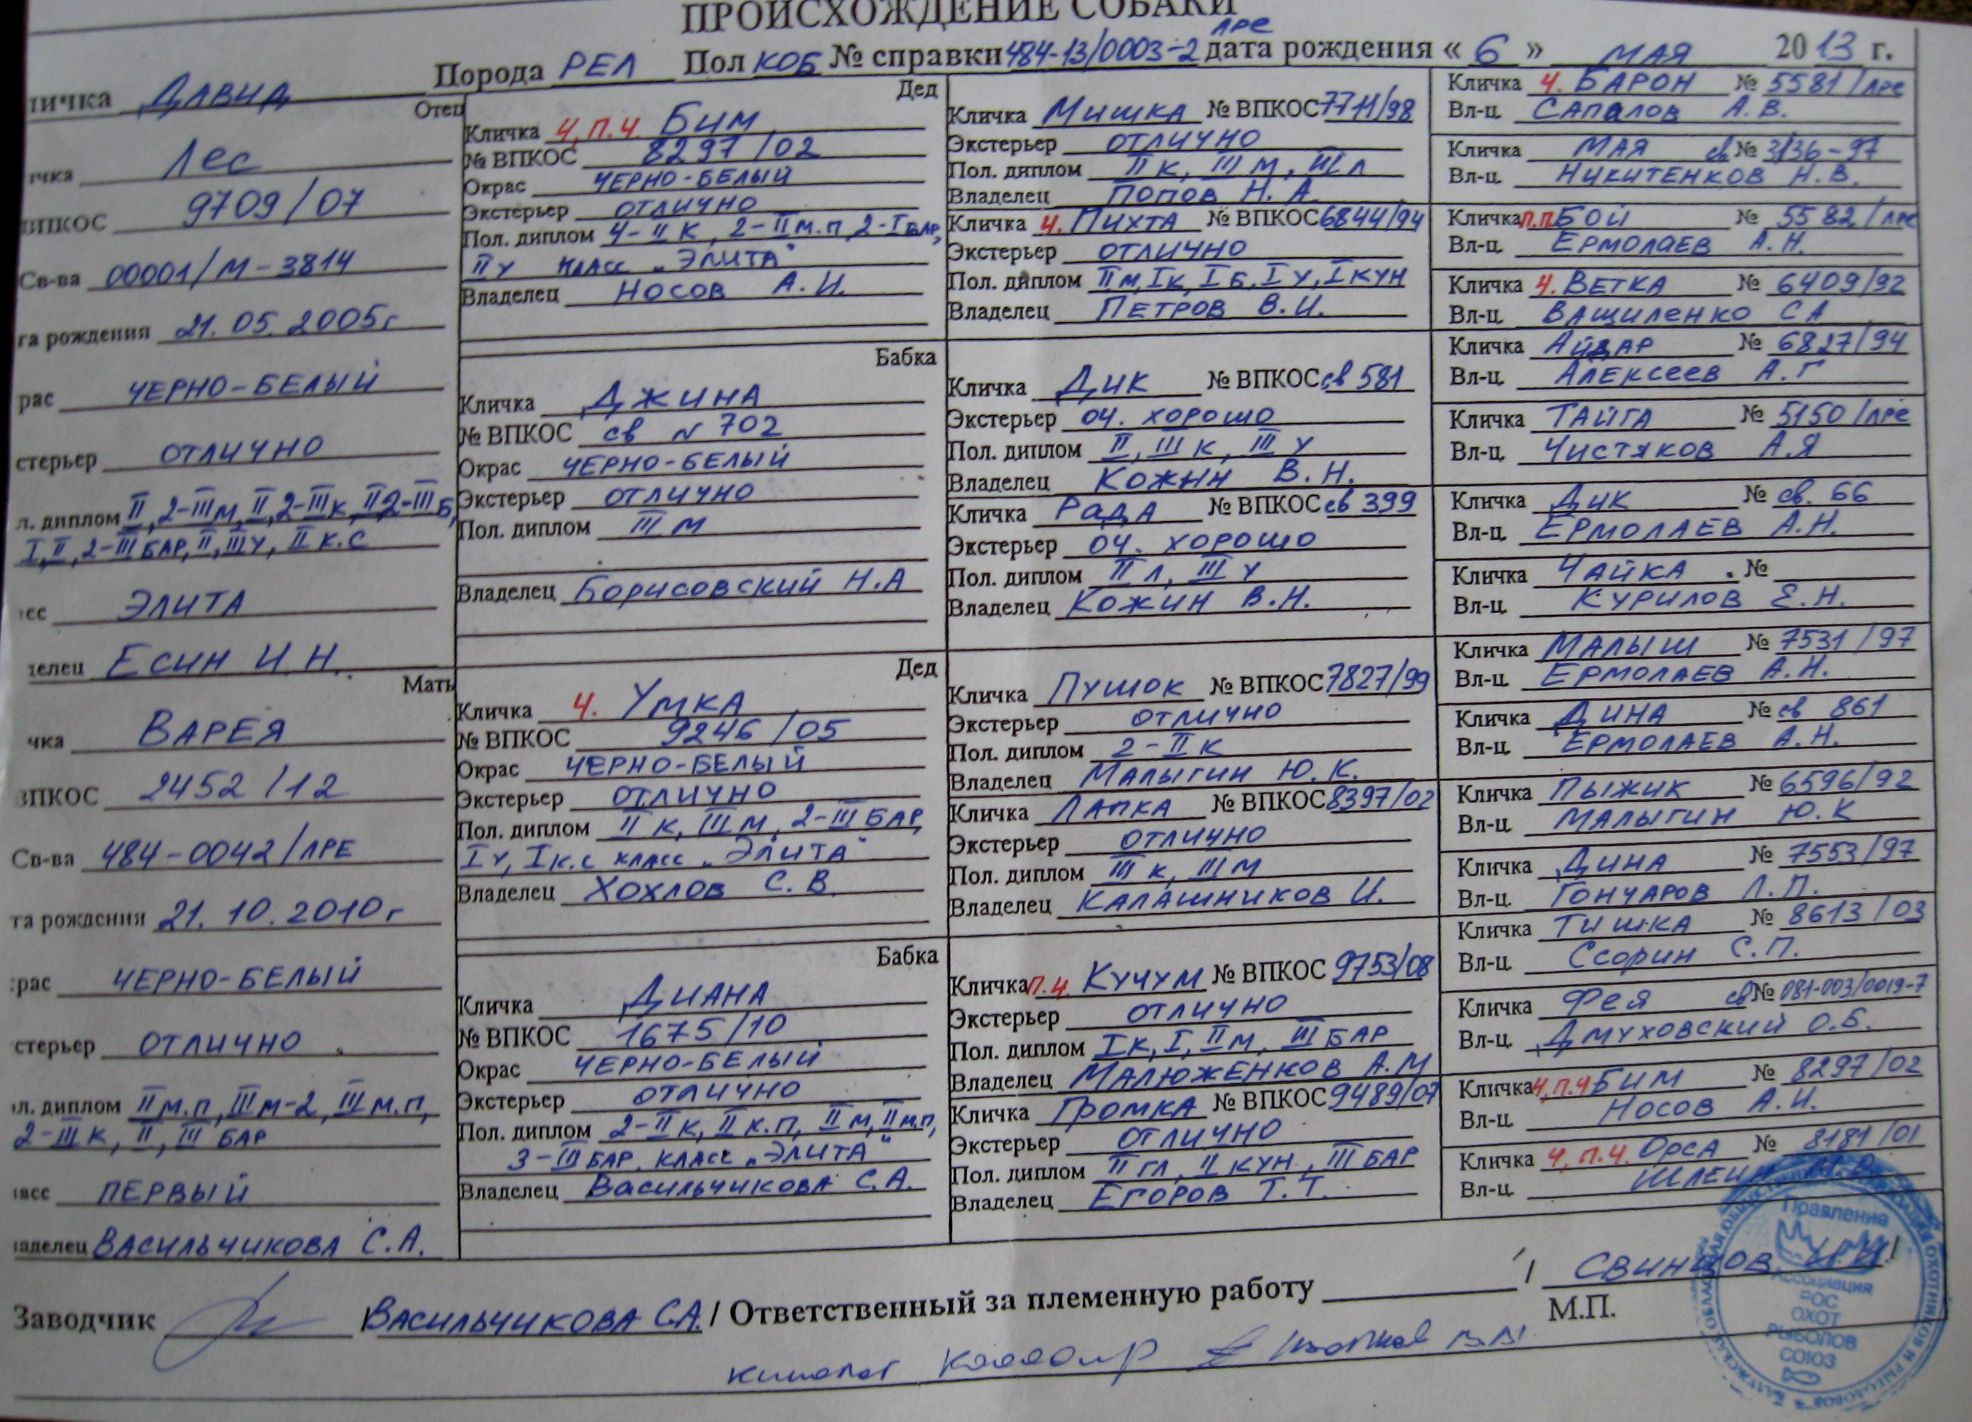 ПРОИСХОЖДЕНИЕ СОБАКИ
личка ДАВИД Порода РЕЛ Пол КОБ № справки 484-13/0003-2 ЛРЕ дата рождения « 6 » МАЯ 2013 г.
Отец
ичка Лес
ВПКОС 9709/07
Св-ва 00001/М-3814
га рождения 21.05.2005г
рас ЧЕРНО-БЕЛЫЙ
стерьер ОТЛИЧНО
л. диплом II, 2-III М, II, 2-III К, II, 2-III Б,
I, II, 2-III БАР, II, III У, II К.С
сс ЭЛИТА
елец ЕСИН И.Н.
Мать
чка ВАРЕЯ
ВПКОС 2452/12
Св-ва 484-0042/ЛРЕ
та рождения 21.10.2010г
рас ЧЕРНО-БЕЛЫЙ
стерьер ОТЛИЧНО
л. диплом II М.П, III М-2, III М.П,
2-III К, II, III БАР
асс ПЕРВЫЙ
аделец ВАСИЛЬЧИКОВА С.А.
Дед
Кличка Ч,П.Ч БИМ
№ ВПКОС 8297/02
Окрас ЧЕРНО-БЕЛЫЙ
Экстерьер ОТЛИЧНО
Пол. диплом 4-II К, 2-II М.П, 2-I БАР,
II У КЛАСС „ЭЛИТА"
Владелец НОСОВ А.И.
Бабка
Кличка ДЖИНА
№ ВПКОС св N 702
Окрас ЧЕРНО-БЕЛЫЙ
Экстерьер ОТЛИЧНО
Пол. диплом III М
Владелец БОРИСОВСКИЙ Н.А
Дед
Кличка Ч. УМКА
№ ВПКОС 9246/05
Окрас ЧЕРНО-БЕЛЫЙ
Экстерьер ОТЛИЧНО
Пол. диплом II К, III М, 2-III БАР,
I У, I К.С КЛАСС „ЭЛИТА"
Владелец ХОХЛОВ С.В.
Бабка
Кличка ДИАНА
№ ВПКОС 1675/10
Окрас ЧЕРНО-БЕЛЫЙ
Экстерьер ОТЛИЧНО
Пол. диплом 2-II К, II К.П, II М, II М.П,
3-III БАР. КЛАСС „ЭЛИТА"
Владелец ВАСИЛЬЧИКОВА С.А.
Кличка МИШКА № ВПКОС 7711/98
Экстерьер ОТЛИЧНО
Пол. диплом II К, III М, III Л
Владелец ПОПОВ Н.А.
Кличка Ч. ПИХТА № ВПКОС 6844/94
Экстерьер ОТЛИЧНО
Пол. диплом II М, I К, I Б, I У, I КУН
Владелец ПЕТРОВ В.И.
Кличка ДИК № ВПКОС св 581
Экстерьер ОЧ. ХОРОШО
Пол. диплом II, III К, III У
Владелец КОЖИН В.Н.
Кличка РАДА № ВПКОС св 399
Экстерьер ОЧ. ХОРОШО
Пол. диплом II Л, III У
Владелец КОЖИН В.Н.
Кличка ПУШОК № ВПКОС 7827/99
Экстерьер ОТЛИЧНО
Пол. диплом 2-II К
Владелец МАЛЫГИН Ю.К.
Кличка ЛАПКА № ВПКОС 8397/02
Экстерьер ОТЛИЧНО
Пол. диплом III К, III М
Владелец КАЛАШНИКОВ И.
Кличка П.Ч. КУЧУМ № ВПКОС 9753/08
Экстерьер ОТЛИЧНО
Пол. диплом I К, I, II М, III БАР
Владелец МАЛЮЖЕНКОВ А.М
Кличка ГРОМКА № ВПКОС 9489/07
Экстерьер ОТЛИЧНО
Пол. диплом II ГЛ, II КУН, III БАР
Владелец ЕГОРОВ Т.Т.
Кличка Ч. БАРОН № 5581/ЛРЕ
Вл-ц. САПАЛОВ А.В.
Кличка МАЯ св № 3136-97
Вл-ц. НИКИТЕНКОВ Н.В.
Кличка П.П БОЙ № 5582/ЛРЕ
Вл-ц. ЕРМОЛАЕВ А.Н.
Кличка Ч. ВЕТКА № 6409/92
Вл-ц. ВАЩИЛЕНКО СА
Кличка АЙДАР № 6827/94
Вл-ц. АЛЕКСЕЕВ А.Г
Кличка ТАЙГА № 5150/ЛРЕ
Вл-ц. ЧИСТЯКОВ А.Я
Кличка ДИК № св. 66
Вл-ц. ЕРМОЛАЕВ А.Н.
Кличка ЧАЙКА №
Вл-ц. КУРИЛОВ Е.Н.
Кличка МАЛЫШ № 7531/97
Вл-ц. ЕРМОЛАЕВ А.Н.
Кличка ДИНА № св 861
Вл-ц. ЕРМОЛАЕВ А.Н.
Кличка ПЫЖИК № 6596/92
Вл-ц. МАЛЫГИН Ю.К
Кличка ДИНА № 7553/97
Вл-ц. ГОНЧАРОВ Л.П.
Кличка ТИШКА № 8613/03
Вл-ц. ССОРИН С.П.
Кличка ФЕЯ св № 081-003/0019-7
Вл-ц. ДМУХОВСКИЙ О.Б.
Кличка Ч,П.Ч БИМ № 8297/02
Вл-ц. НОСОВ А.И.
Кличка Ч,П.Ч. ОРСА № 8181/01
Вл-ц. ШЛЕИН М.О.
Заводчик /ВАСИЛЬЧИКОВА С.А./ Ответственный за племенную работу / СВИНЦОВ Н.И./
М.П.
кинолог
Правление
Ассоциация
РОС
ОХОТ
РЫБОЛОВ
СОЮЗ